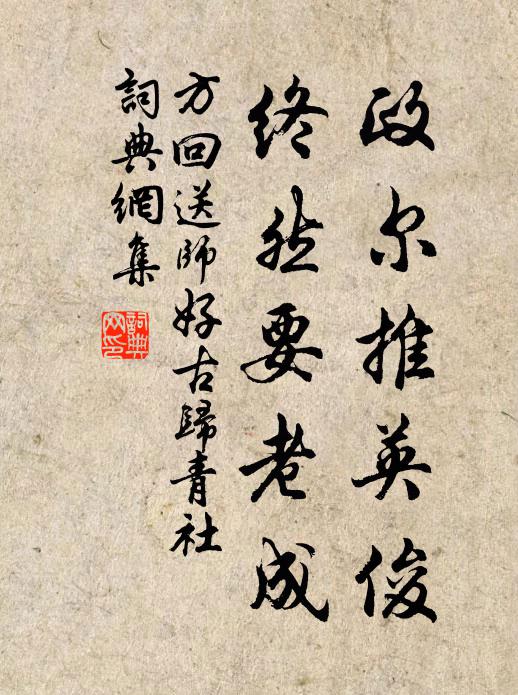 政尔推英俊
终然要老成
方回送師好古歸青社
詞典網集
詞典网印